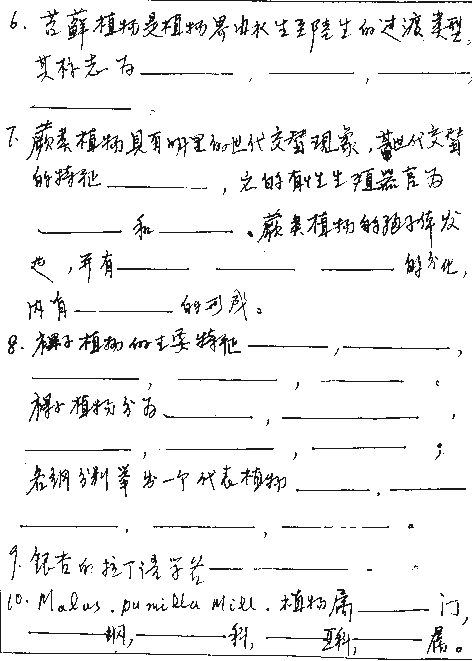 6. 苔藓植物是植物界由水生至陆生的过渡类型,
其标志为______, ______, ______,
______.
7. 蕨类植物具有明显的世代交替现象,其世代交替
的特征______,它的有性生殖器官为
______和______。蕨类植物的孢子体发
达,并有______ ______ ______的分化,
内有______的形成。
8. 裸子植物的主要特征______,______,
______,______,______。
裸子植物分为______,______,
______,______,______;
各纲分别举出一个代表植物______,______
______,______,______。
9. 银杏的拉丁语学名______ ______.
10. Malus. pumilla Mill. 植物属______门,
______纲,______科,______亚科,______属。